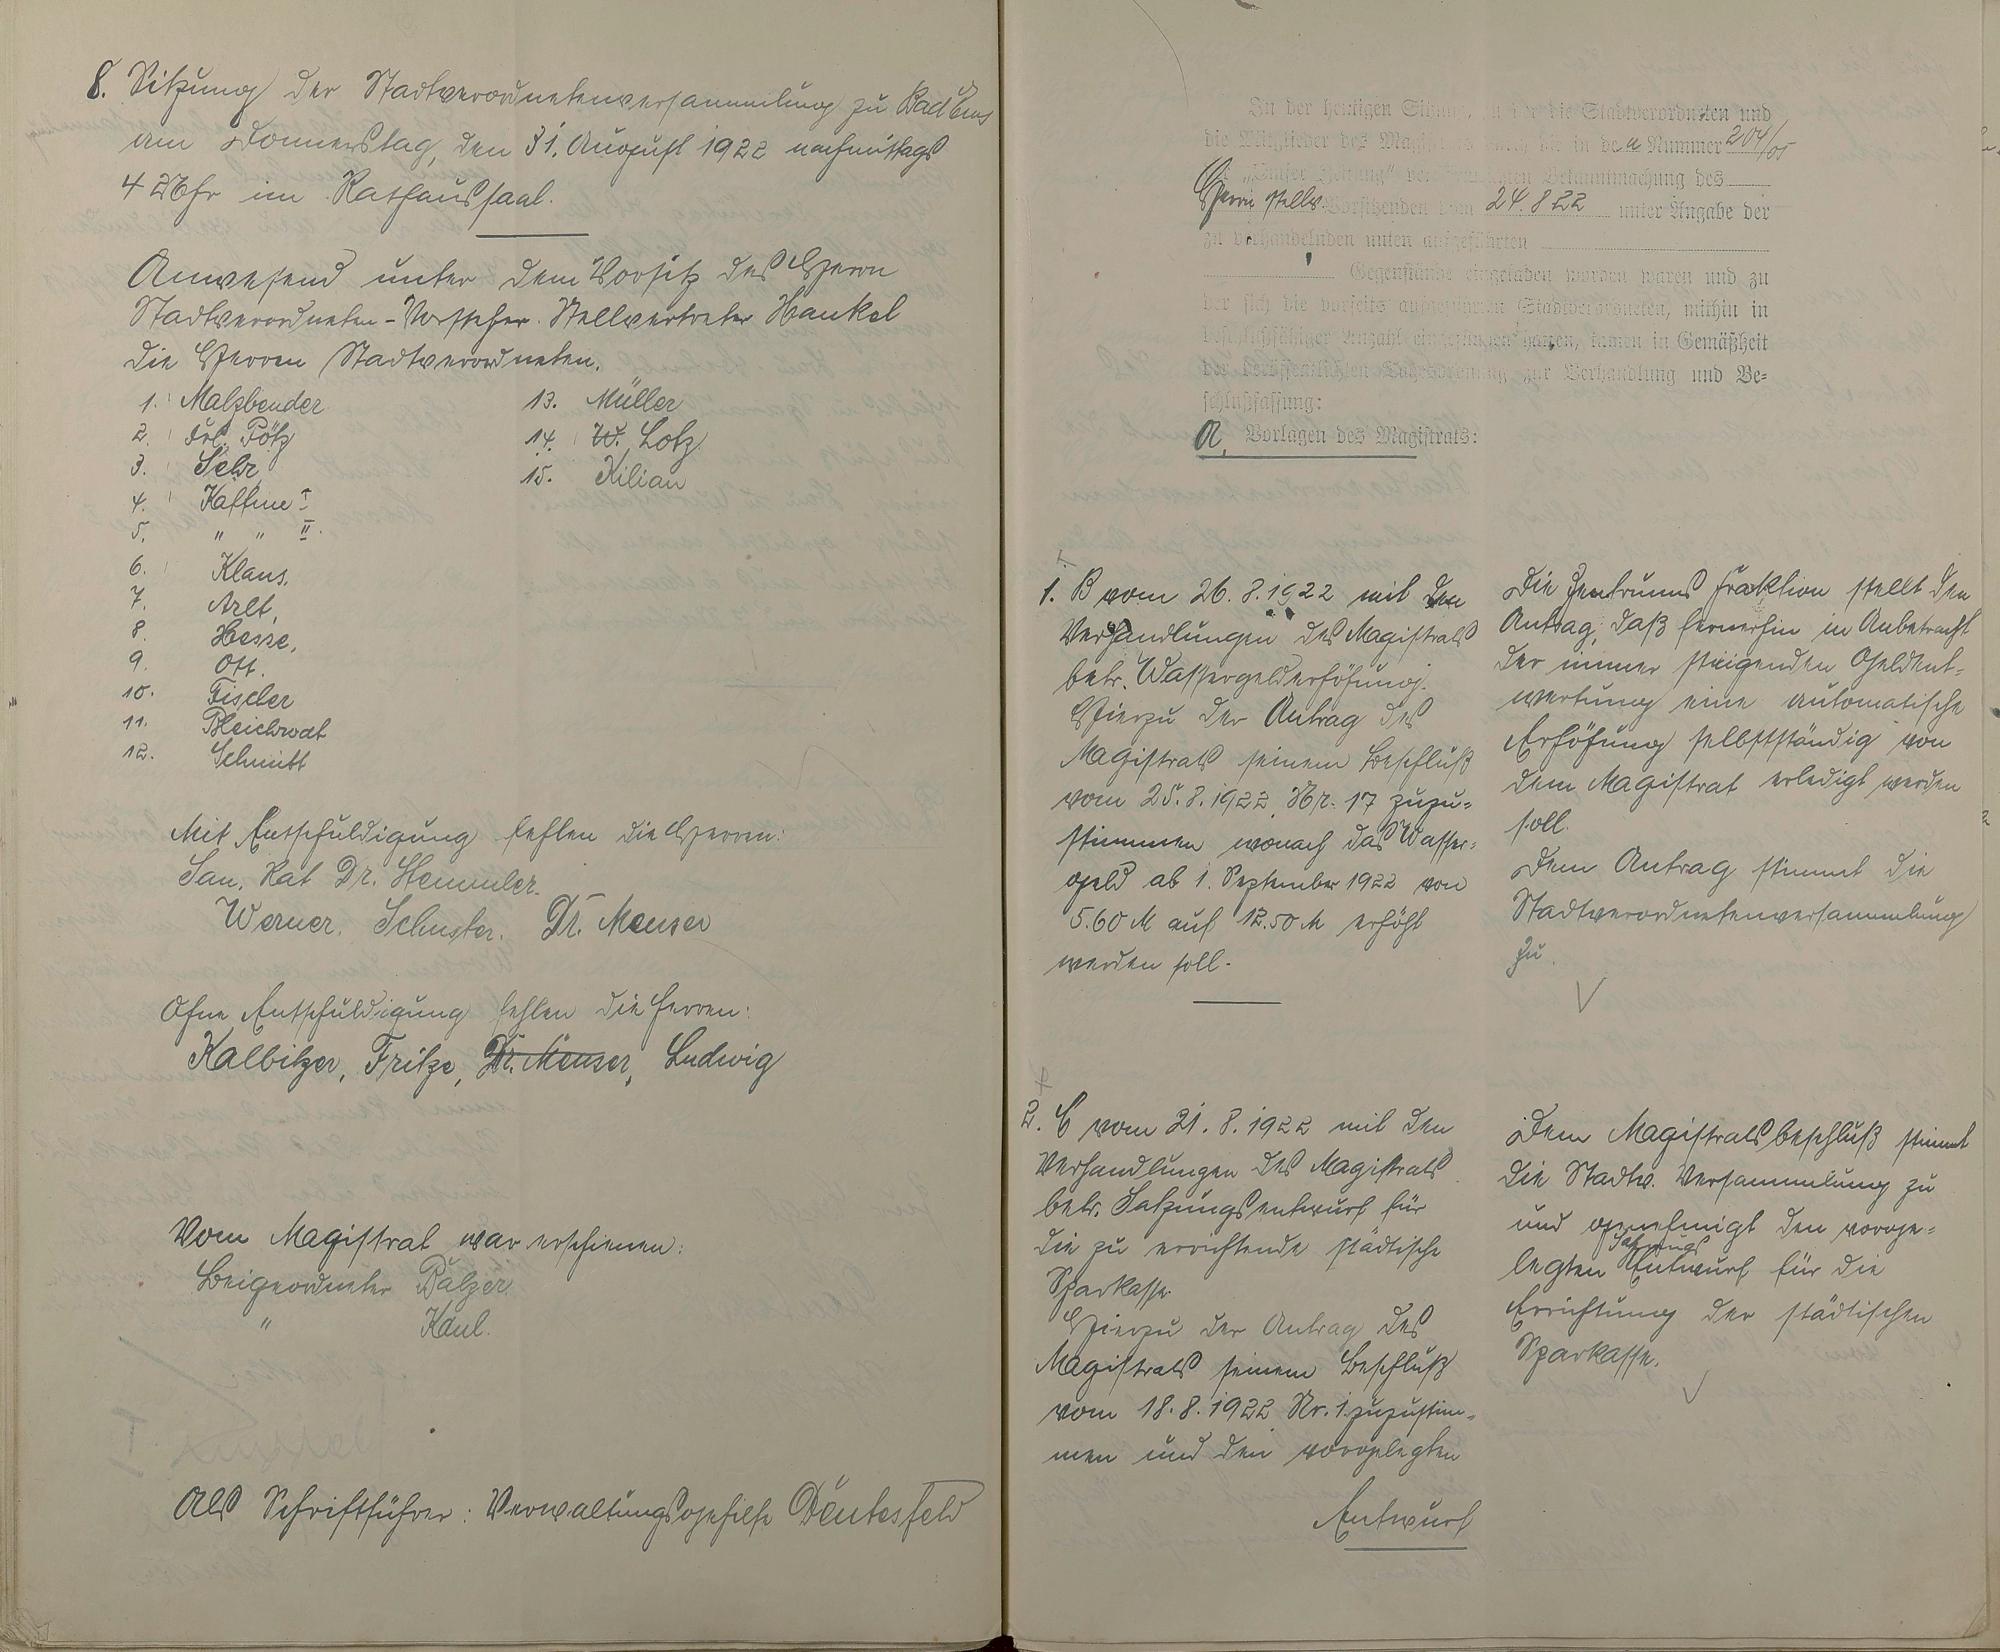 8. Sitzung der Stadtverordnetenversammlung zu Bad Ems
am Donnerstag, den 31. August 1922 nachmittags
4 Uhr im Rathaussaal.
Anwesend unter dem Vorsitz des Herrn
Stadtverordneten-Vorsteher-Stellvertreter Hankel
die Herren Stadtverordneten.
1. Malzbender
2. Frl. Pötz
3. Sehr
4. Kaffine I
5. " " II.
6. Klaus.
7. Arlt,
8. Hesse,
9. Ott.
10. Fischer
11. Bleichrodt
12. Schmitt
13. Müller
14. W. Lotz
15. Kilian
Mit Entschuldigung fehlen die Herren:
San. Rat Dr. Hemmler.
Werner. Schuster. Dr. Menser
Ohne Entschuldigung fehlen die Herren:
Kalbitzer, Fritze, Dr. Menser, Ludwig
Vom Magistrat war erschienen:
Beigeordneter Balzer
" Kaul.
Als Schriftführer: Verwaltungsgehilfe Dentesfeld
In der heutigen Sitzung, zu der die Stadtverordneten und
die Mitglieder des Magistrats durch die in der Nummer 204/05
"Emser Zeitung" veröffentlichten Bekanntmachung des
Herrn stellv. Vorsitzenden vom 24.8 22 unter Angabe der
zu verhandelnden unten aufgeführten
Gegenstände eingeladen worden waren und zu
der sich die vorseits aufgeführten Stadtverordneten, mithin in
beschlußfähiger Anzahl eingefunden hatten, kamen in Gemäßheit
der veröffentlichten Tagesordnung zur Verhandlung und Be-
schlußfassung:
A. Vorlagen des Magistrats:
1. B vom 26.8.1922 mit den
Verhandlungen des Magistrats
betr. Wassergelderhöhung.
Hierzu der Antrag des
Magistrats seinem Beschluß
vom 25.8.1922 Nr. 17 zuzu-
stimmen wonach das Wasser-
geld ab 1. September 1922 von
5.60 M auf 12.50 M erhöht
werden soll.
Die Zentrums Fraktion stellt den
Antrag, daß fernerhin in Anbetracht
der immer steigenden Geldent-
wertung eine automatische
Erhöhung selbstständig von
dem Magistrat erledigt werden
soll.
Dem Antrag stimmt die
Stadtverordnetenversammlung
zu.
2. C vom 21.8.1922 mit den
Verhandlungen des Magistrats
betr. Satzungsentwurf für
die zu errichtende städtische
Sparkasse.
Hierzu der Antrag des
Magistrats seinem Beschluß
vom 18.8.1922 Nr. 1 zuzustim-
men und den vorgelegten
Entwurf
Dem Magistratsbeschluß stimmt
die Stadtv. Versammlung zu
und genehmigt den vorge-
legten Satzungs Entwurf für die
Errichtung der städtischen
Sparkasse.